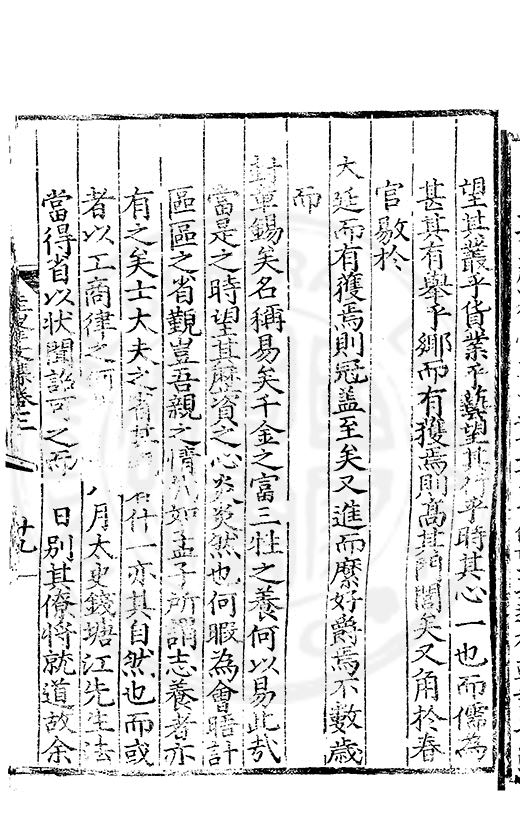 望其叢乎貨業乎藝望其行乎時其心一也而儒為
甚其有舉乎鄉而有獲焉則高其門閭矣又角於春
官敭於
大廷而有獲焉則冠蓋至矣又進而縻好爵焉不數歲
而
封章錫矣名稱易矣千金之富三牲之養何以易此哉
當是之時望其縻者之心炎炎然也何暇為會晤計
區區之省觀豈吾親之情哉如孟子所謂志養者亦
有之矣士大夫之省其 什一亦其自然也而或
者以工商律之何 八月太史錢塘江先生法
當得省以狀聞詔可之而 日別其僚將就道故余
卷三
十九